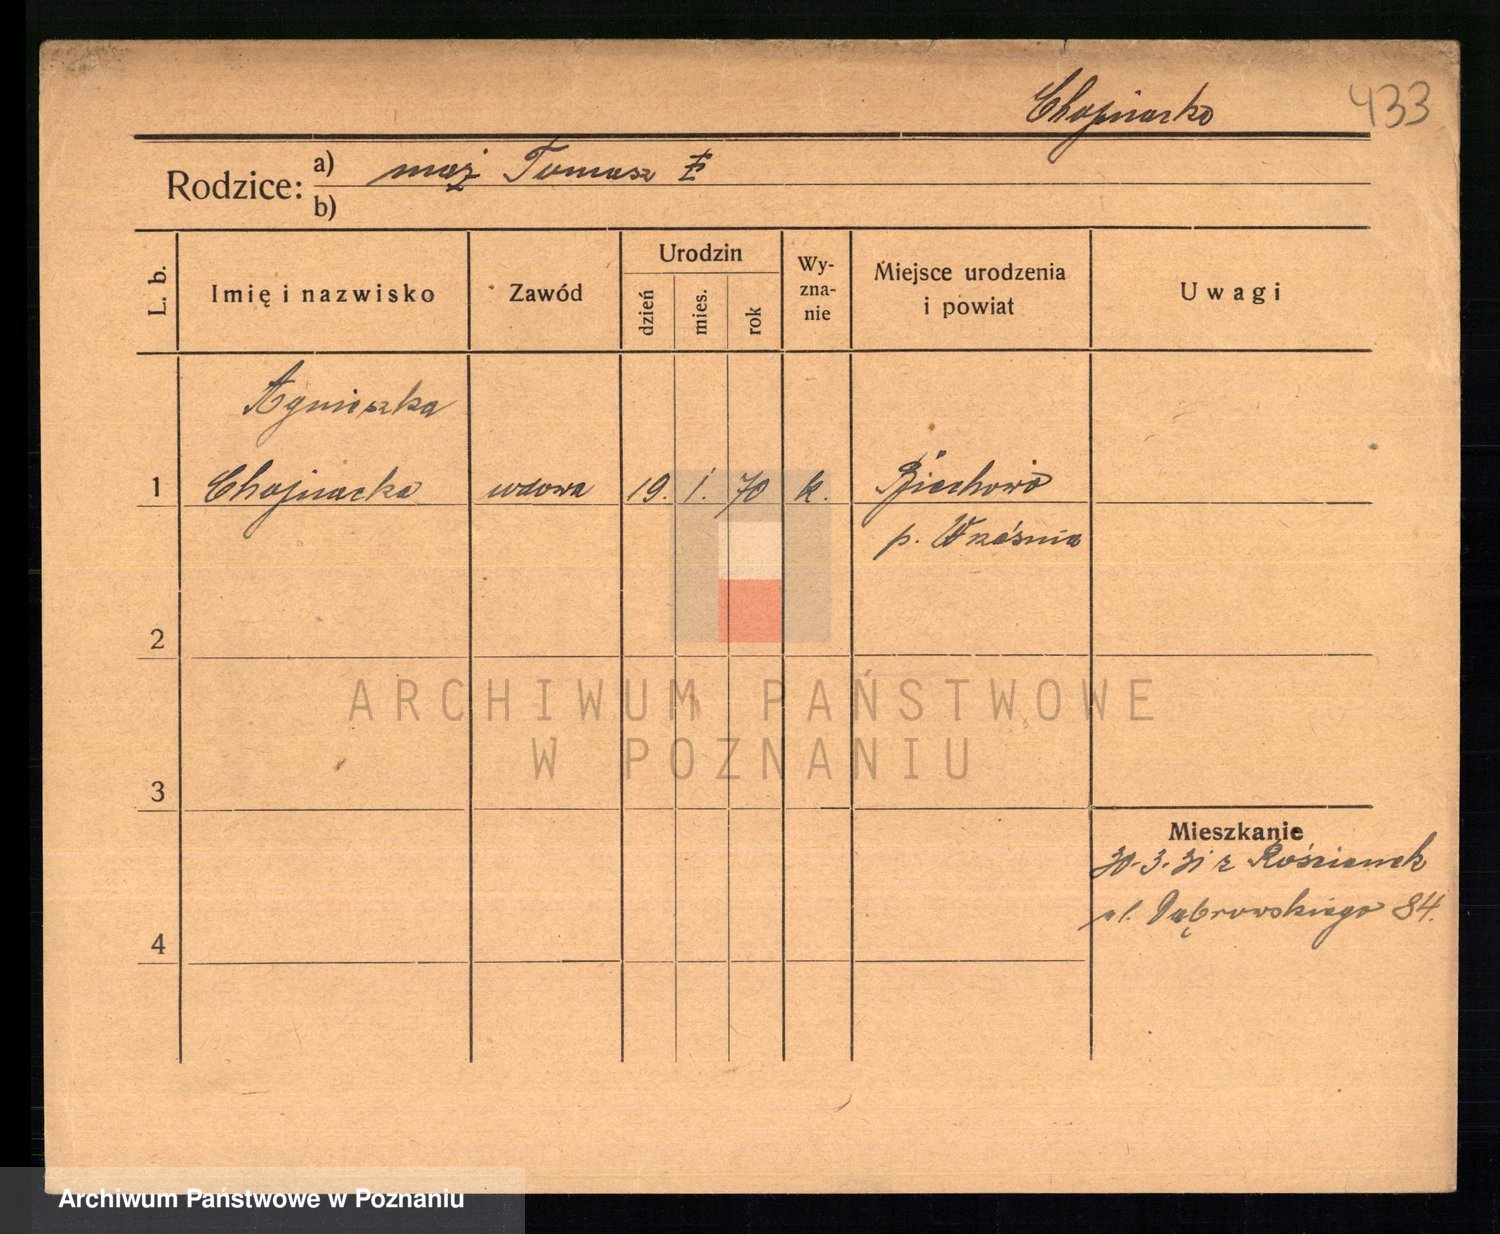 Chojnacka
433
Rodzice: a) mąż Tomasz
b)
L. b.
Imię i nazwisko
Zawód
Urodzin
dzień
mies.
rok
Wy-
zna-
nie
Miejsce urodzenia
i powiat
Uwagi
Agnieszka
1 Chojnacka wdowa 19. 1. 70 k. Biechowo
p. Września
2
3
4
Mieszkanie
30.3.31 z
ul. Dąbrowskiego 84.
ARCHIWUM PAŃSTWOWE
W POZNANIU
Archiwum Państwowe w Poznaniu